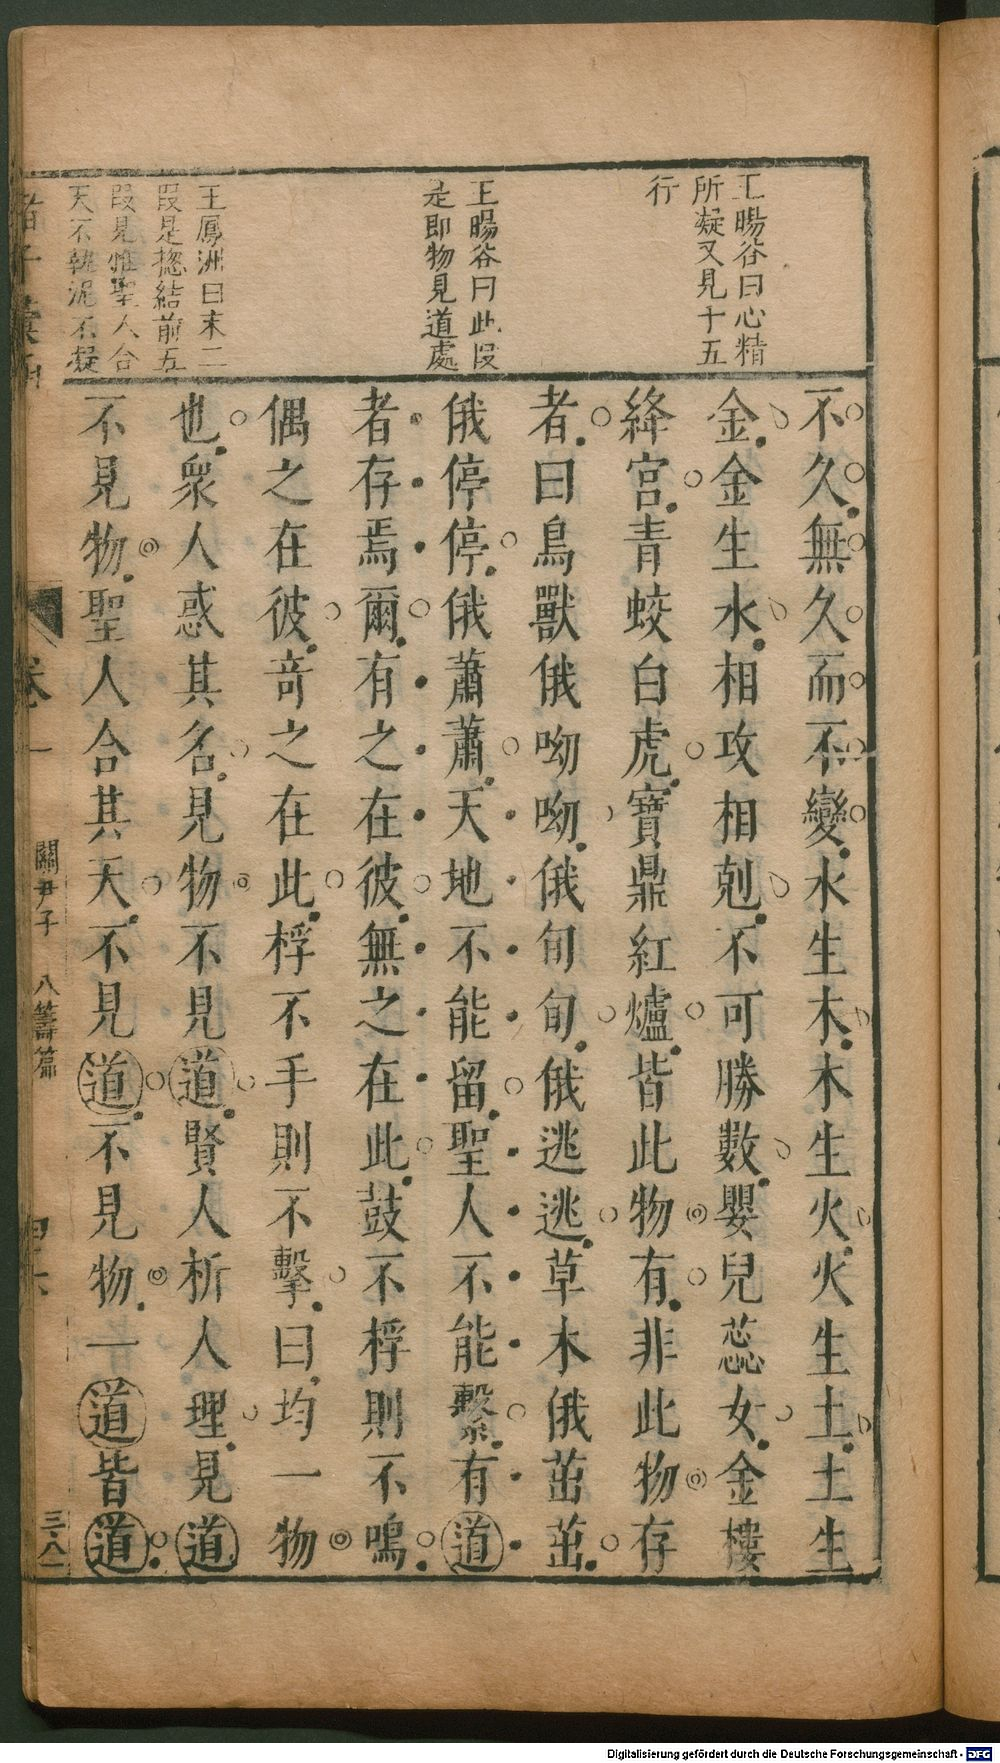 王暘谷曰心精
所凝又見十五
行
王暘谷曰此段
是即物見道處
王鳳洲曰末二
段是揔結前五
段見惟聖人合
天不執泥不凝
不久無久而不變水生木木生火火生土土生
金金生水相攻相剋不可勝數嬰兒蕊女金樓
絳宮青蛟白虎寶鼎紅爐皆此物有非此物存
者曰鳥獸俄呦呦俄旬旬俄逃逃草木俄茁茁
俄停停俄蕭蕭天地不能留聖人不能繫有道
者存焉爾有之在彼無之在此鼓不桴則不鳴
偶之在彼奇之在此桴不手則不擊曰均一物
也衆人惑其名見物不見道賢人析人理見道
不見物聖人合其天不見道不見物一道皆道
諸子彙
卷一
關尹子
八籌篇
三八一
Digitalisierung gefördert durch die Deutsche Forschungsgemeinschaft - DFG